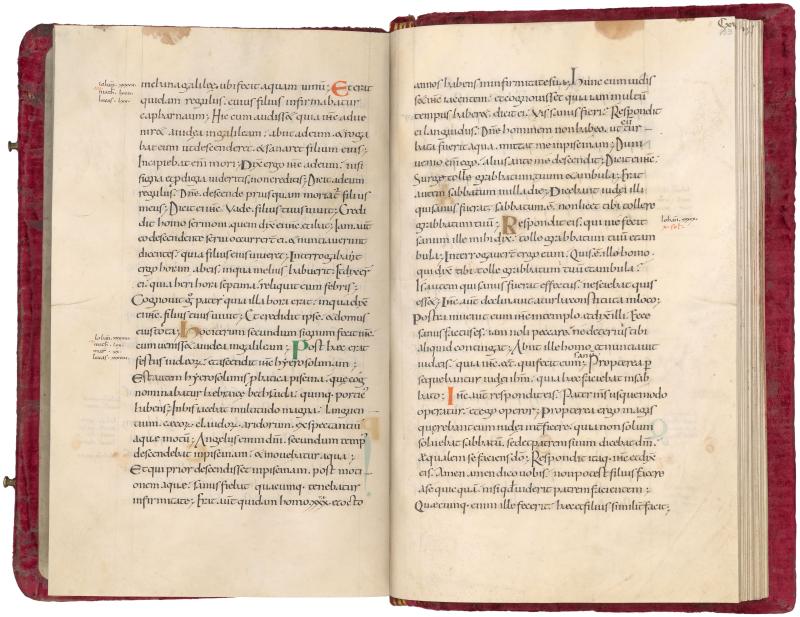 in chana galileę, ubi fecit aquam uinū; Et erat
quidam regulus, cuius filius infirmabatur
capharnaum; Hic cum audisset quia ihc̄ adue
niret a iudea in galileam, abiit ad eum, & roga
bat eum ut descenderet, & sanaret filium eius;
Incipiebat enī mori; Dixit ergo ihc̄ ad eum; nisi
signa & prodigia uideritis, non creditis; Dicit ad eum
regulus; Dn̄e, descende priusquam moriatur filius
meus; Dicit ei ihc̄; Vade, filius tuus uiuit; Credi
dit homo sermoni quem dixit ei ihc̄, & ibat; Iam aūt
eo descendente serui occurrerunt ei, & nuntiauerunt
dicentes, quia filius eius uiueret; Interrogabat
ergo horam ab eis, in qua melius habuerit; Et dixer̄
ei, quia heri hora septima, reliquit eum febris;
Cognouit g̊ pater quia illa hora erat, in qua dixit
ei ihc̄, filius tuus uiuit; Et credidit ipse, & domus
eius tota; Hoc iterum secundum signum fecit ihc̄,
cum uenisset a iudea in galileam; Post haec erat
festus iudeoȝ, & ascendit ihc̄ hyerosolimam;
Est autem hyerosolimis probatica piscina, quę cog
nominabatur hebraice bethsaida, quinq; porticus
habens; In his iacebat multitudo magna, languen
tium, cęcoȝ, claudoȝ, aridorum, expectantiū
aquę motū; Angelus enim dn̄i, secundum temp;
descendebat in piscinam, & mouebatur aqua;
Et qui prior descendisset in piscinam, post moti
onem aquę, sanus fiebat a quacumq; tenebatur
infirmitate; Erat aūt quidam homo xxx & octo
annos habens in infirmitate sua; Hunc cum uidis
set ihc̄ iacentem, & cognouisset quia iam multū
tempus haberet, dicit ei; Vis sanus fieri; Respondit
ei languidus; Dn̄e hominem non habeo, ut cum tur
bata fuerit aqua, mittat me in piscinam; Dum
uenio enim ego, alius ante me descendit; Dicit ei ihc̄;
Surge tolle grabbatum tuum & ambula; Erat
autem sabbatum in illa die; Dicebant iudei illi
qui sanus fuerat, sabbatum ē, non licet tibi tollere
grabbatum tuū; Respondit eis, qui me fecit
sanum, ille mihi dixit, tolle grabbatum tuū et am
bula; Interrogauerunt ergo eum, Quis ē ille homo,
qui dixit tibi tolle grabbatum tuū & ambula;
Is autem qui sanus fuerat effectus, nesciebat quis
esset; Ihc̄ aūt declinauit a turba constituta in loco;
Postea inuenit eum ihc̄ in templo, et dixit illi; Ecce
sanus factus es, iam noli peccare, ne deterius tibi
aliquid contingat; Abiit ille homo, et nuntiauit
iudeis, quia ihc̄ eēt qui fecit eum sanū; Propterea p̄
sequebantur iudei ihm̄, quia haec faciebat in sab
bato; Ihc̄ aūt respondit eis, Pater ms̄ usque modo
operatur, et ego operor; Propterea ergo magis
quęrebant eum iudei interficere, quia non solum
soluebat sabbatū, sed et patrem suum dicebat dm̄,
ęqualem se faciens dō; Respondit itaq; ihc̄ et dixit
eis, Amen amen dico uobis, non potest filius facere
a se quicquā, nisi quod uiderit patrem facientem;
Quęcumq; enim ille fecerit, haec et filius similit̄ facit;